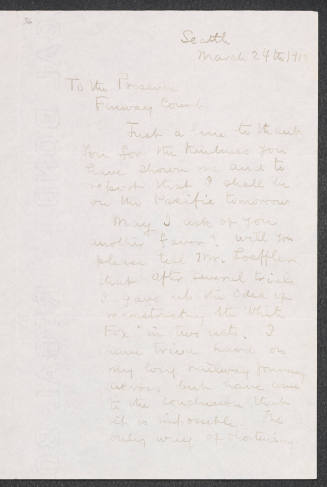 Seattle
March 24th 191
To the
Fenway Court
Just a line to thank
you for the kindness you
have shown me and to
report that I shall be
on the Pacific tomorrow
May I ask of you
another favor? Will you
please tell Mr. Loeffler
that after several trials
I gave up the idea of
constructing the "White
Fox" in two acts. I
have tried hard on
my long railway journey
across but have come
to the conclusion that
it is impossible. The
only way of shortening